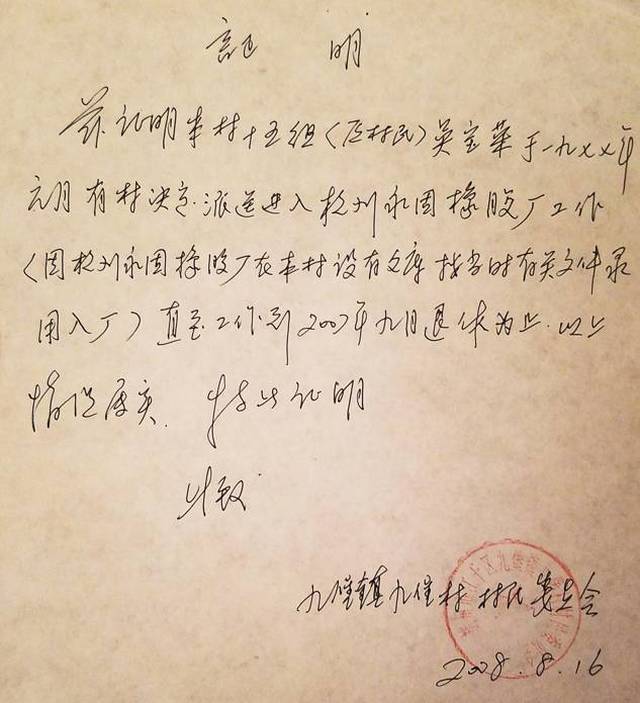 証 明
兹证明本村十五组（居村民）英宝华于一九七七年
元月有村决定.派送进入杭州永固橡胶厂工作
（因杭州永固橡胶厂在本村设有仓库按当时有关文件录
用入厂）直至工作到2007年九月退休为止.以上
情况属实. 特此证明
此致
九堡镇九堡村村民委员会
2008.8.16